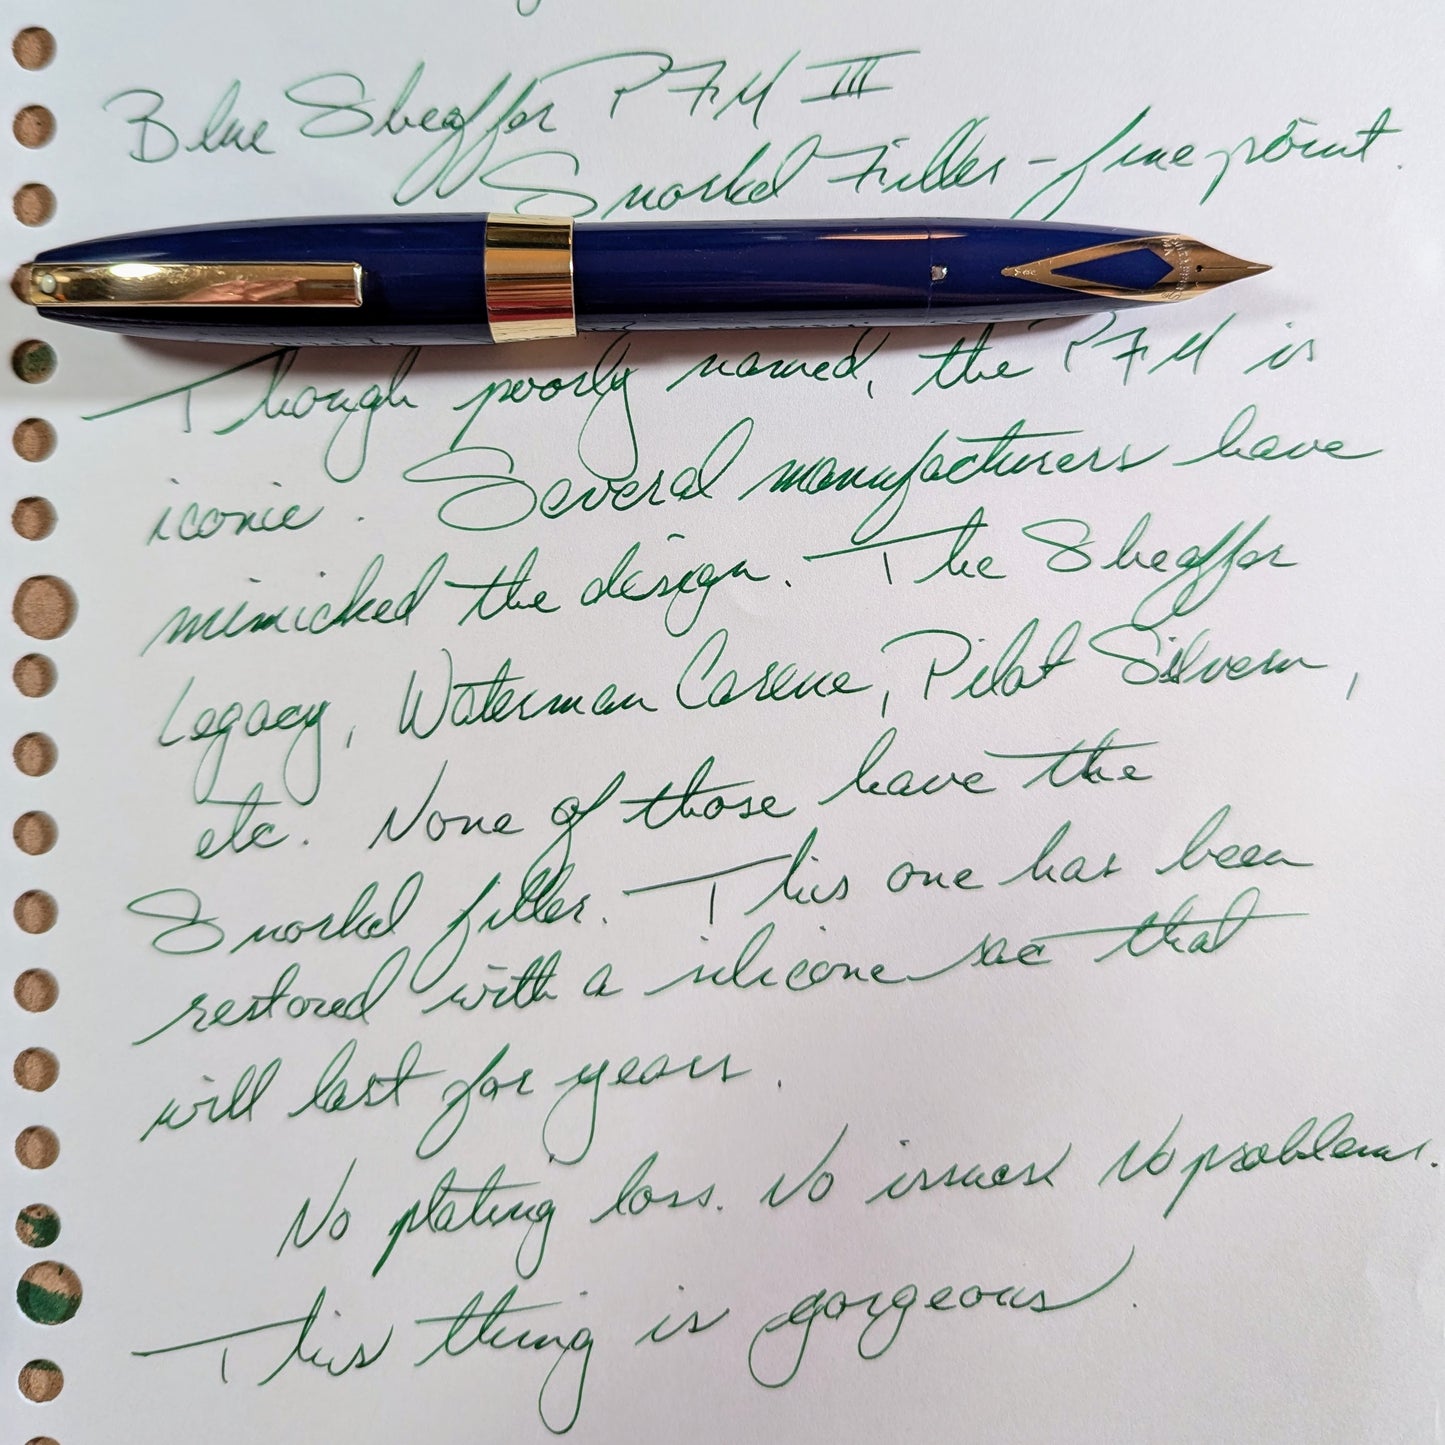 Blue Sheaffer PFM III
Snorkel Filler - fine point.
Though poorly named, the PFM is
iconic. Several manufacturers have
mimicked the design. The Sheaffer
Legacy, Waterman Carene, Pilot Silvern,
etc. None of those have the
Snorkel filler. This one has been
restored with a silicone sac that
will last for years.
No plating loss. No issues. No problems.
This thing is gorgeous.